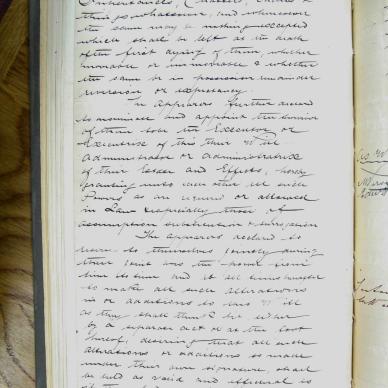 Inheritances, Chattels,
things whatsoever, and wheresoever
the same may be nothing excepted
which shall be left at the death
of the first dying of them whether
movable or immovable & whether
the same be in possession remainder
reversion or expectancy.
The appearers further declared
to nominate and appoint the survivor
of them to be the Executor or
Executrix of this their Will
Administrator or Administratrix
of their Estate and Effects, hereby
granting unto each other all such
Powers as are required or allowed
in Law especially those of
assumption substitution & surrogation
The appearers declared to
reserve to themselves
the power from
time to time and at all times hereafter
to make all such alterations
in or additions to this Will
as they shall think fit either
by a separate act or at the foot
hereof, desiring that all such
alterations or additions so made
under their own signature, shall
be held as valid and effectual as